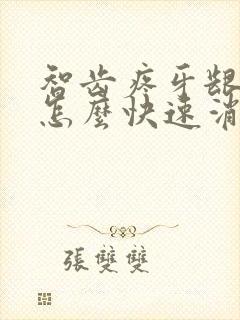 智齿疼牙龈
怎麽快速消
張雙雙